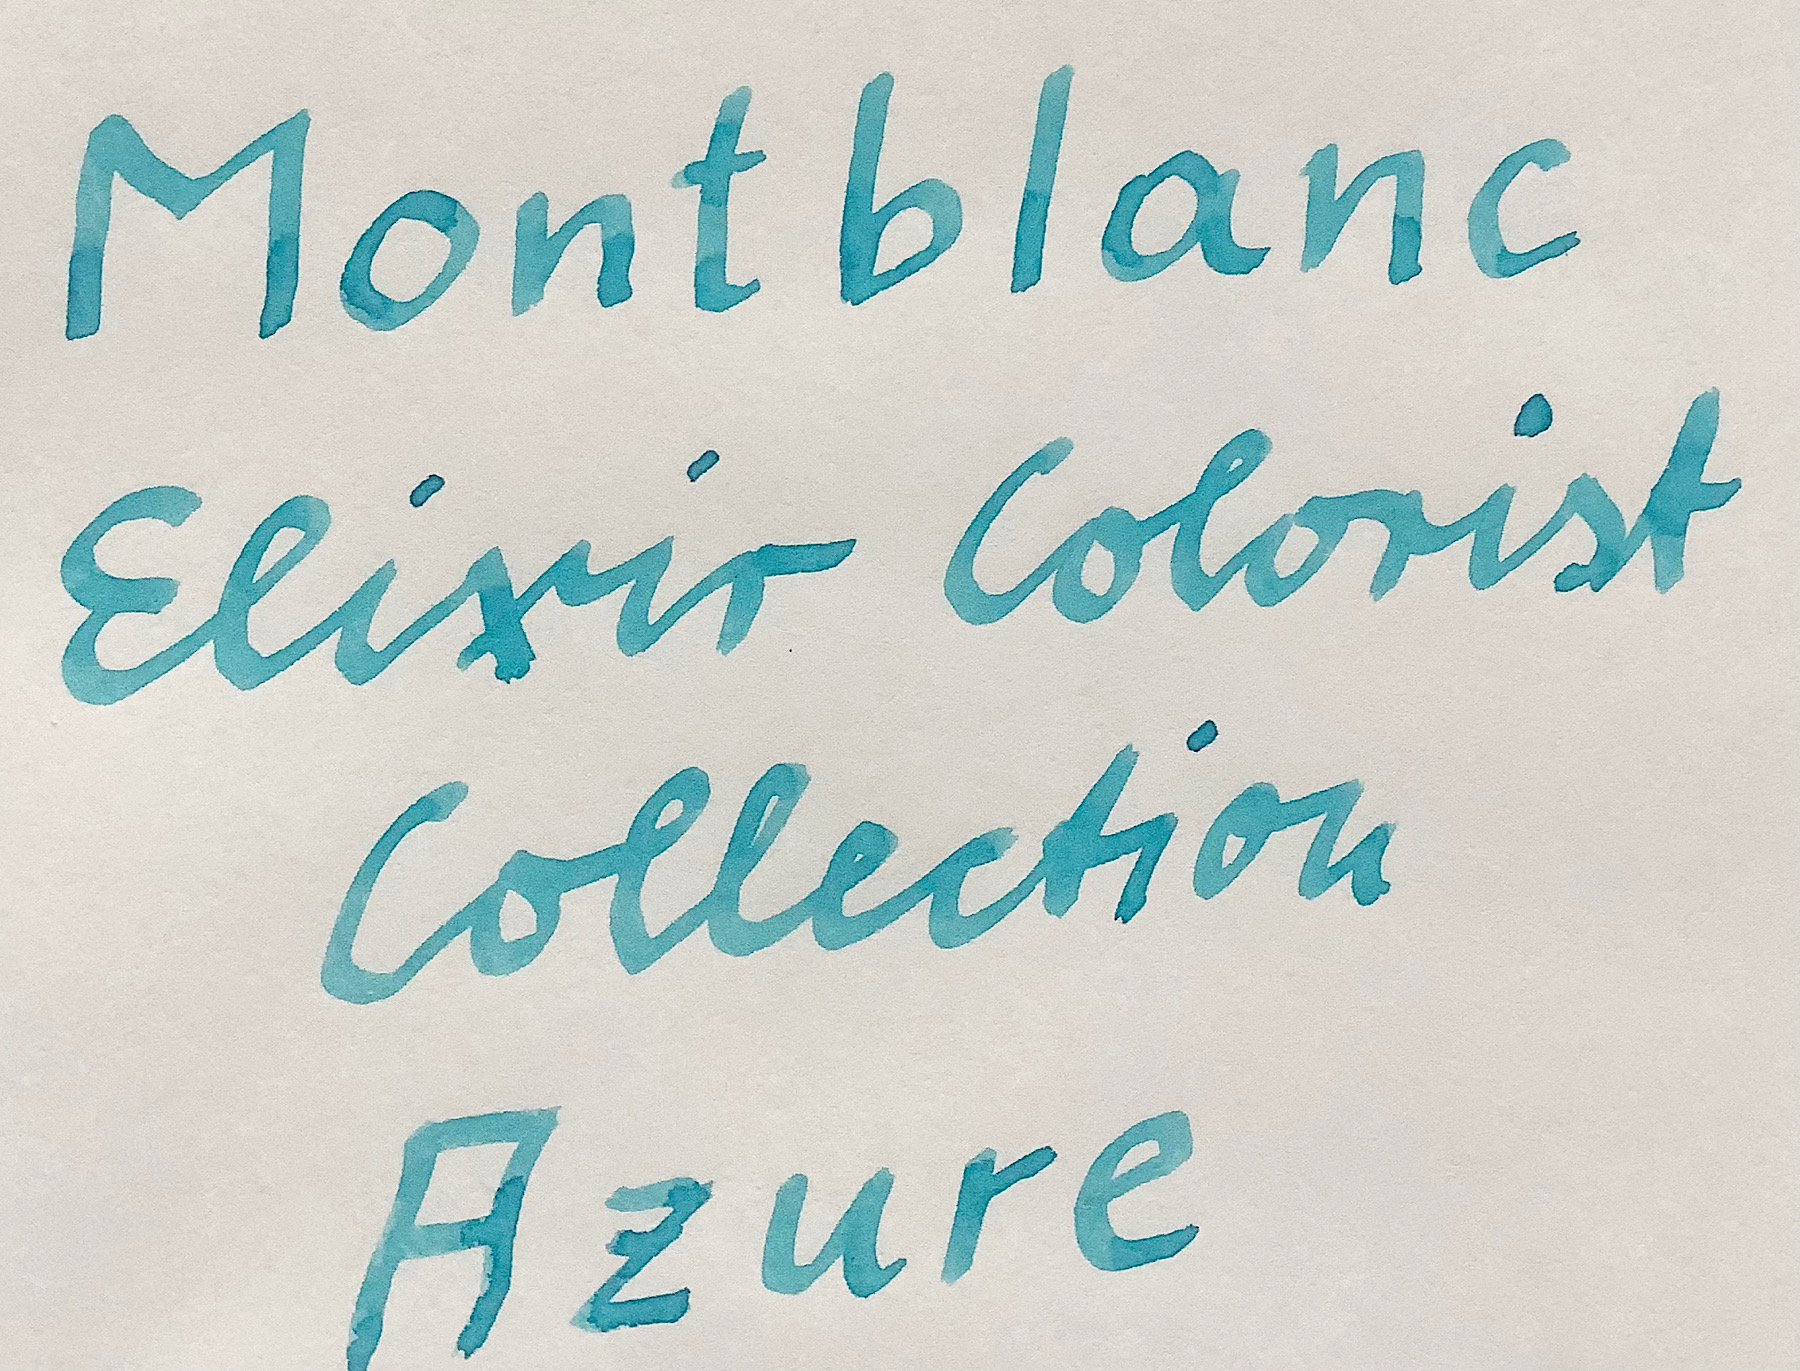 Montblanc
Elixir Colorist
Collection
Azure